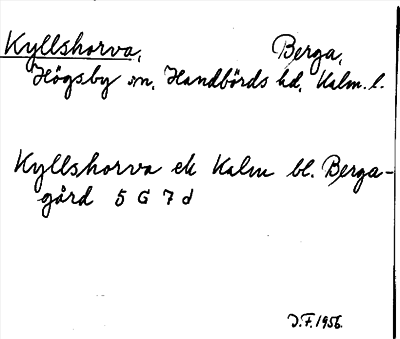 Kyllshorva, Berga,
Högsby sn, Handbörds hd, Kalm. l.
Kyllshorva ek Kalm bl. Berga-
gård 5 G 7 d
J.F. 1956.